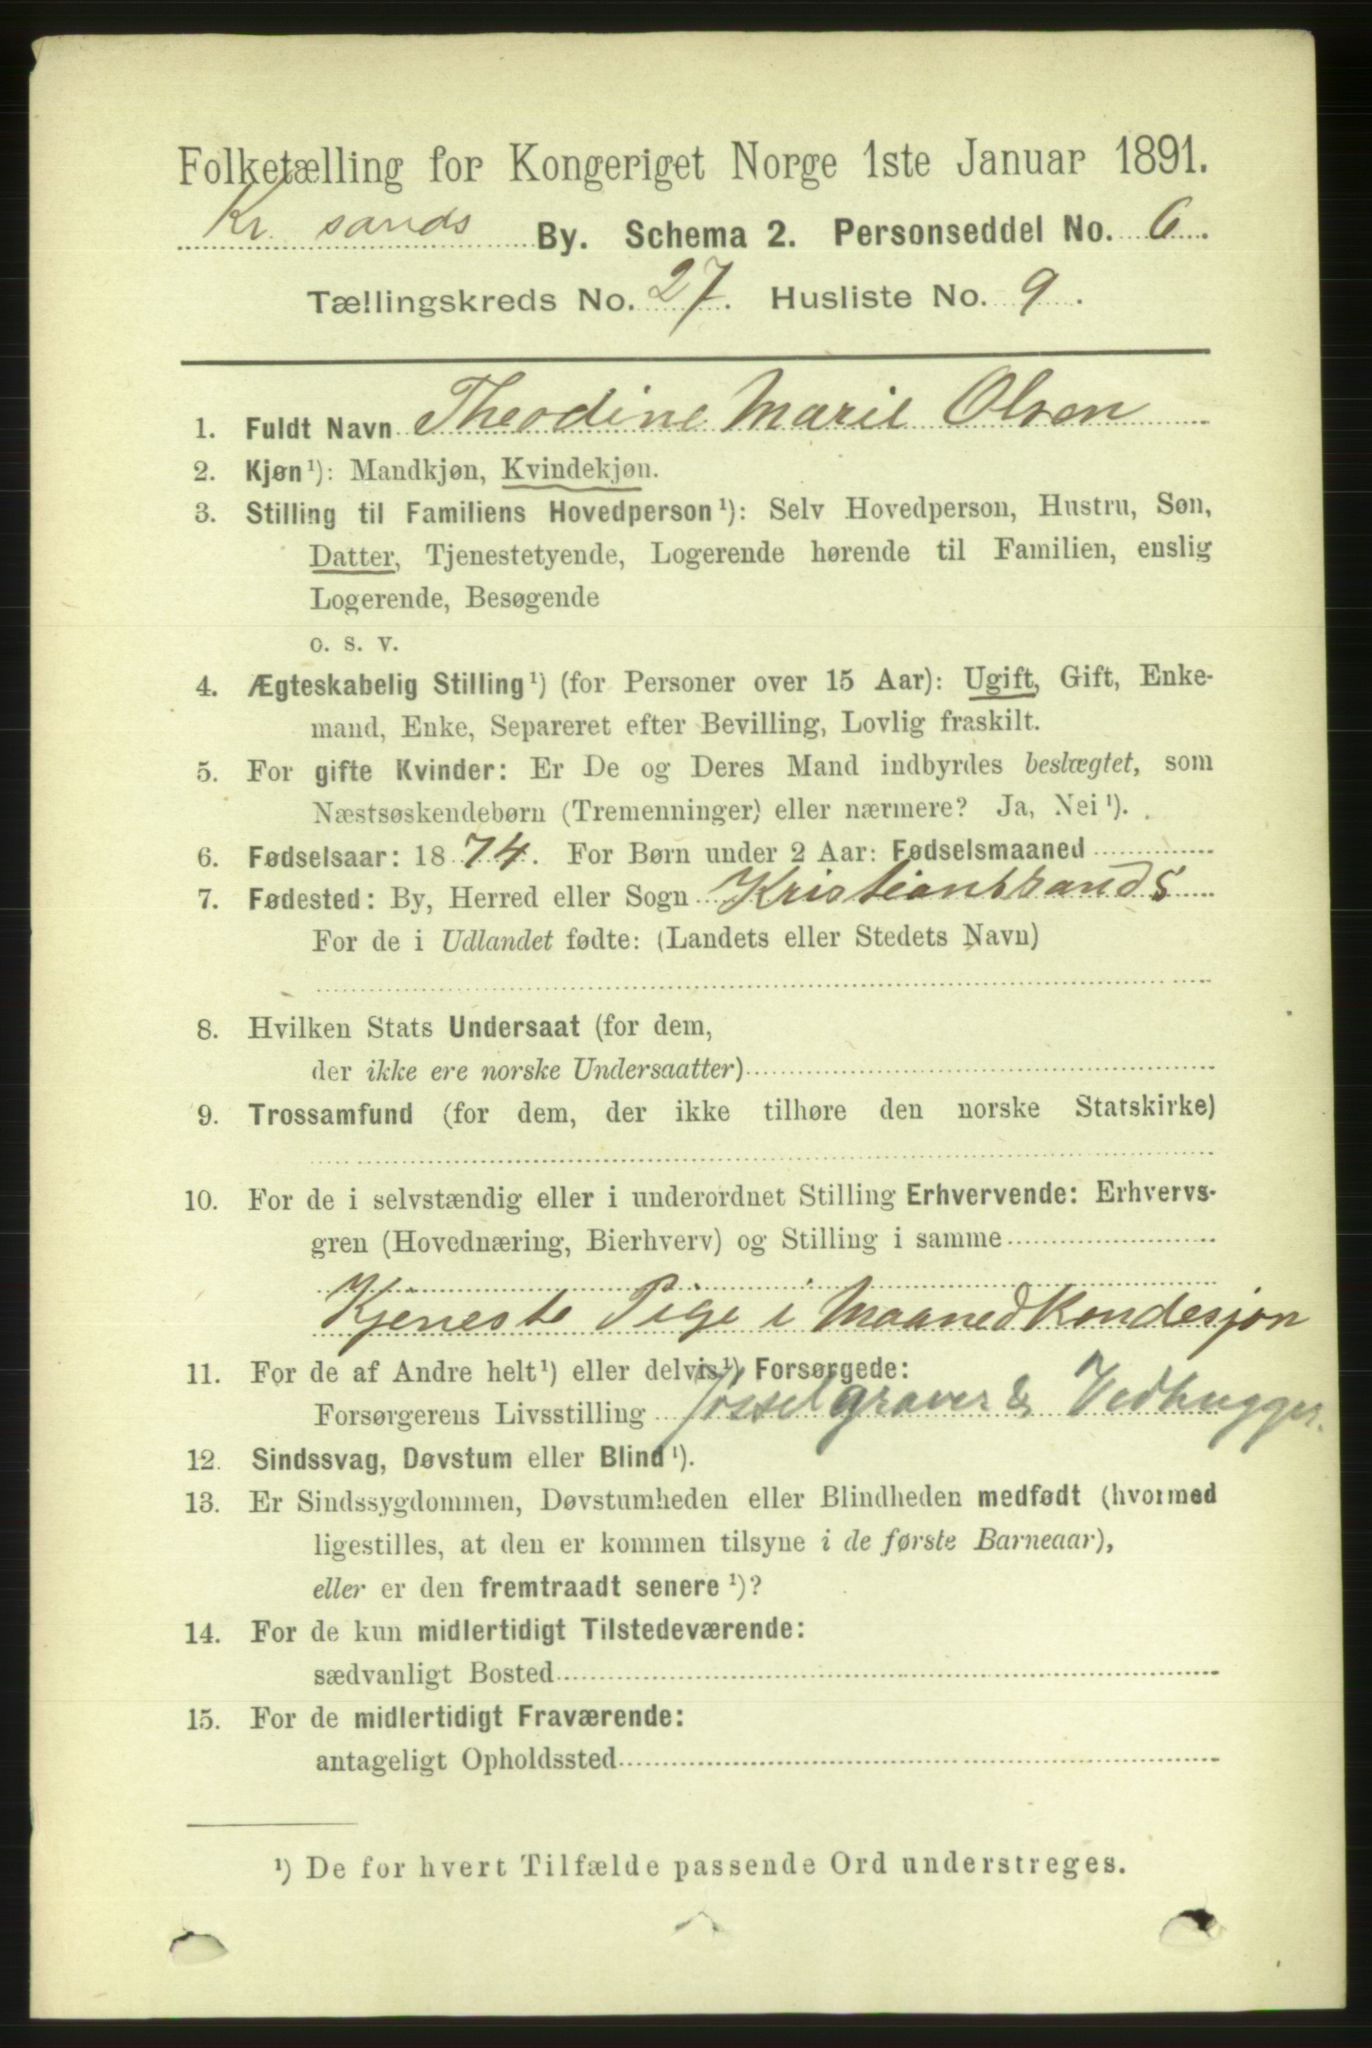 Folketælling for Kongeriget Norge 1ste Januar 1891.
Kr. sands By. Schema 2. Personseddel No. 6.
Tællingskreds No. 27. Husliste No. 9.
1. Fuldt Navn Theodine Marie Olsen
2. Kjøn¹): Mandkjøn, Kvindekjøn.
3. Stilling til Familiens Hovedperson¹): Selv Hovedperson, Hustru, Søn,
Datter, Tjenestetyende, Logerende hørende til Familien, enslig
Logerende, Besøgende
o. s. v.
4. Ægteskabelig Stilling¹) (for Personer over 15 Aar): Ugift, Gift, Enke-
mand, Enke, Separeret efter Bevilling, Lovlig fraskilt.
5. For gifte Kvinder: Er De og Deres Mand indbyrdes beslægtet, som
Næstsøskendebørn (Tremenninger) eller nærmere? Ja, Nei¹).
6. Fødselsaar: 1874. For Børn under 2 Aar: Fødselsmaaned
7. Fødested: By, Herred eller Sogn Kristianssands
For de i Udlandet fødte: (Landets eller Stedets Navn)
8. Hvilken Stats Undersaat (for dem,
der ikke ere norske Undersaatter)
9. Trossamfund (for dem, der ikke tilhøre den norske Statskirke)
10. For de i selvstændig eller i underordnet Stilling Erhvervende: Erhvervs-
gren (Hovednæring, Bierhverv) og Stilling i samme
Kjeneste Pige i Maaned Kondesjon
11. For de af Andre helt¹) eller delvis¹) Forsørgede:
Forsørgerens Livsstilling graver & Vedhugger.
12. Sindssvag, Døvstum eller Blind¹).
13. Er Sindssygdommen, Døvstumheden eller Blindheden medfødt (hvormed
ligestilles, at den er kommen tilsyne i de første Barneaar),
eller er den fremtraadt senere¹)?
14. For de kun midlertidigt Tilstedeværende:
sædvanligt Bosted
15. For de midlertidigt Fraværende:
antageligt Opholdssted
¹) De for hvert Tilfælde passende Ord understreges.